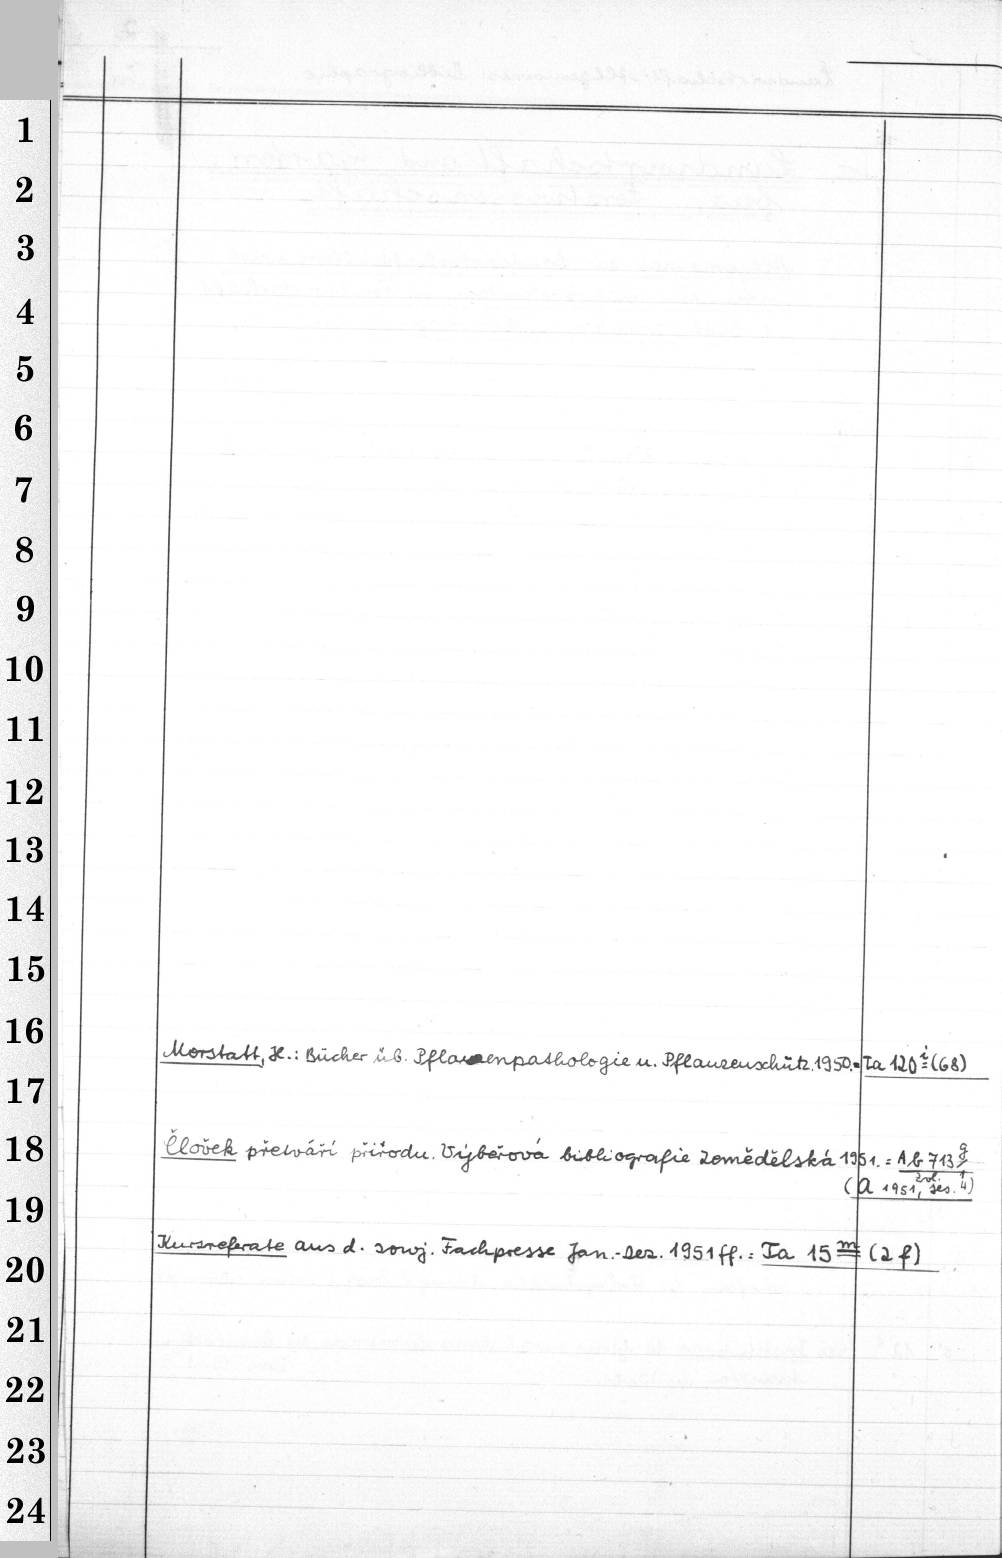 1
2
3
4
5
6
7
8
9
10
11
12
13
14
15
16
Morstatt, H.: Bücher üb. Pflanzenpathologie u. Pflanzenschutz. 1950. = Ia 120 i (68)
17
18
Člověk přetváří přírodu. Výběrová bibliografie zemědělská 1951. = Ab 713 g
(A 1951, zvl. ses. 4)
19
Kurzreferate aus d. sowj. Fachpresse Jan.-Dez. 1951 ff. = Ia 15 m (2 f)
20
21
22
23
24